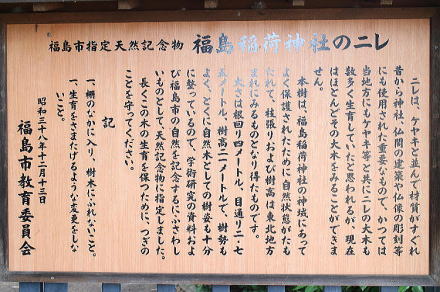 福島市指定天然記念物 福島稲荷神社のニレ
ニレは、ケヤキと並んで材質がすぐれ
昔から神社、仏閣の建築や仏像の彫刻等
にも使用された重要なもので、かつては
当地方にもケヤキ等と共にニレの大木も
数多く生育していたと思われるが、現在
はほとんどその大木をみることができま
せん。
本樹は、福島稲荷神社の神域にあって
よく保護されたために自然状態がたも
たれて、枝張りおよび樹高は東北地方
まれにみるものとなり得たものです。
太さは根まわり四メートル、目通り二・七
五メートル、樹高二一メートルで、樹勢も
よく、とくに自然木としての樹姿も十分
に整っているので、学術研究の資料およ
び福島市の自然を記念するにふさわし
いものとして、天然記念物に指定しました。
長くこの木の生育を保つために、つぎの
ことを守ってください。
記
一、柵のなかに入り、樹木にふれないこと。
一、生育をさまたげるような変更をしな
いこと。
昭和三十八年十二月十三日
福島市教育委員会